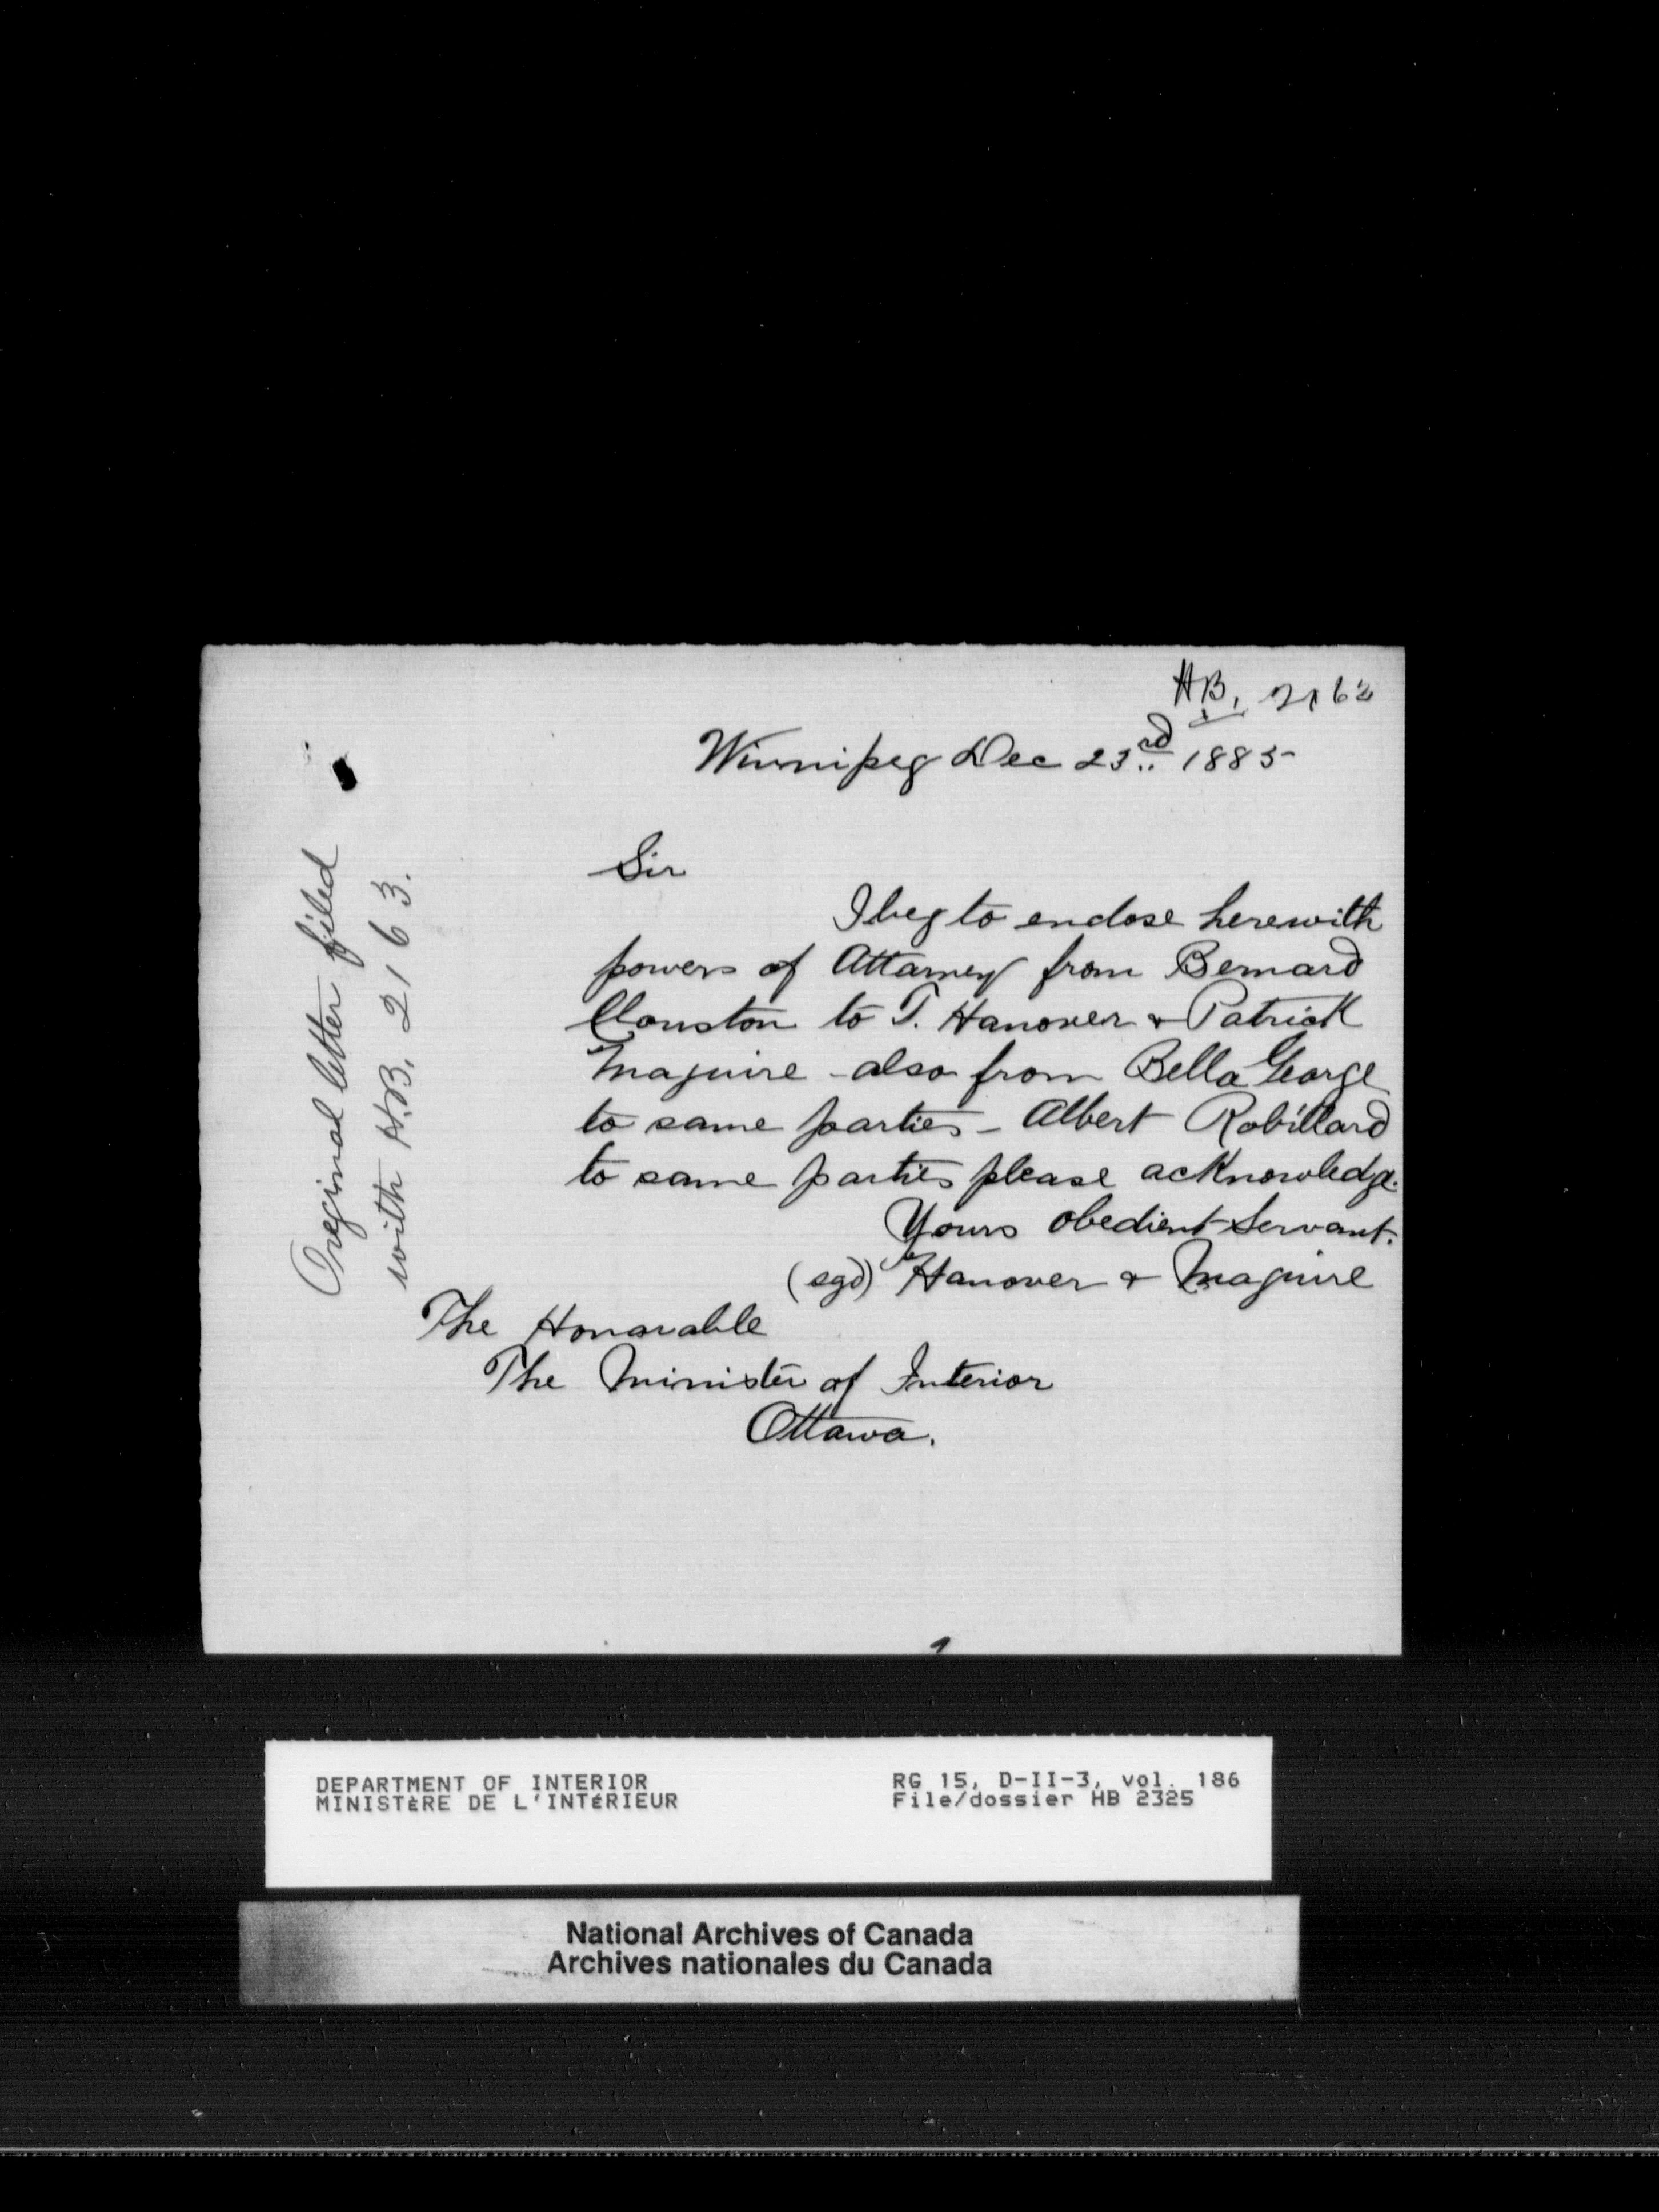 HB. 2163
Winnipeg Dec 23rd 1885
Sir
I beg to enclose herewith
powers of Attorney from Bernard
Clouston to T. Hanover & Patrick
Maguire - also from Bella George
to same parties - Albert Robillard
to same parties please acknowledge.
Yours obedient Servant.
(sgd) Hanover & Maguire
The Honorable
The Minister of Interior
Ottawa.
Original letter filed
with H.B. 2163.
DEPARTMENT OF INTERIOR
MINISTÈRE DE L'INTÉRIEUR
RG 15, D-II-3, vol. 186
File/dossier HB 2325
National Archives of Canada
Archives nationales du Canada